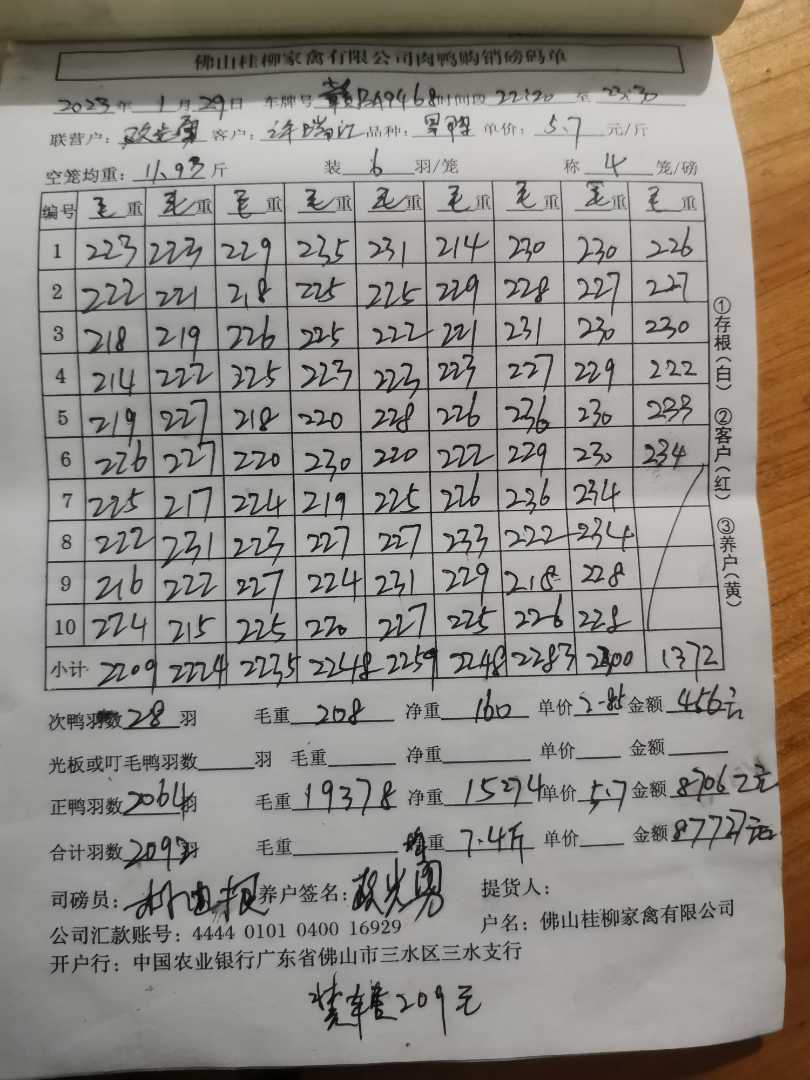 佛山桂柳家禽有限公司肉鸭购销磅码单
2023年1月29日 车牌号 赣BA9468 时间段 22:20 至 23:30
联营户: 欧光勇 客户: 许瑞江 品种: 单价: 5.7 元/斤
空笼均重: 11.93 斤 装 6 羽/笼 称 4 笼/磅
编号 毛重 毛重 毛重 毛重 毛重 毛重 毛重 毛重 毛重
1 223 223 229 235 231 214 230 230 226
2 222 221 218 225 225 229 228 227 227
3 218 219 226 225 222 221 231 230 230
4 214 222 225 223 223 223 227 229 222
5 219 227 218 220 228 226 236 230 233
6 226 227 220 230 220 222 229 230 234
7 225 217 224 219 225 226 236 234
8 222 231 223 227 227 233 222 234
9 216 222 227 224 231 229 218 228
10 224 215 225 220 227 225 226 228
小计 2209 2224 2235 2248 2259 2248 2283 2300 1372
①存根(白) ②客户(红) ③养户(黄)
次鸭羽数 28 羽 毛重 208 净重 160 单价 2.85 金额 456元
光板或叮毛鸭羽数 羽 毛重 净重 单价 金额
正鸭羽数 2064 羽 毛重 19378 净重 15274 单价 5.7 金额 87062元
合计羽数 2092 羽 毛重 重 7.4斤 单价 金额 87727元
司磅员: 养户签名: 欧光勇 提货人:
公司汇款账号: 4444 0101 0400 16929 户名: 佛山桂柳家禽有限公司
开户行: 中国农业银行广东省佛山市三水区三水支行
装车 209元